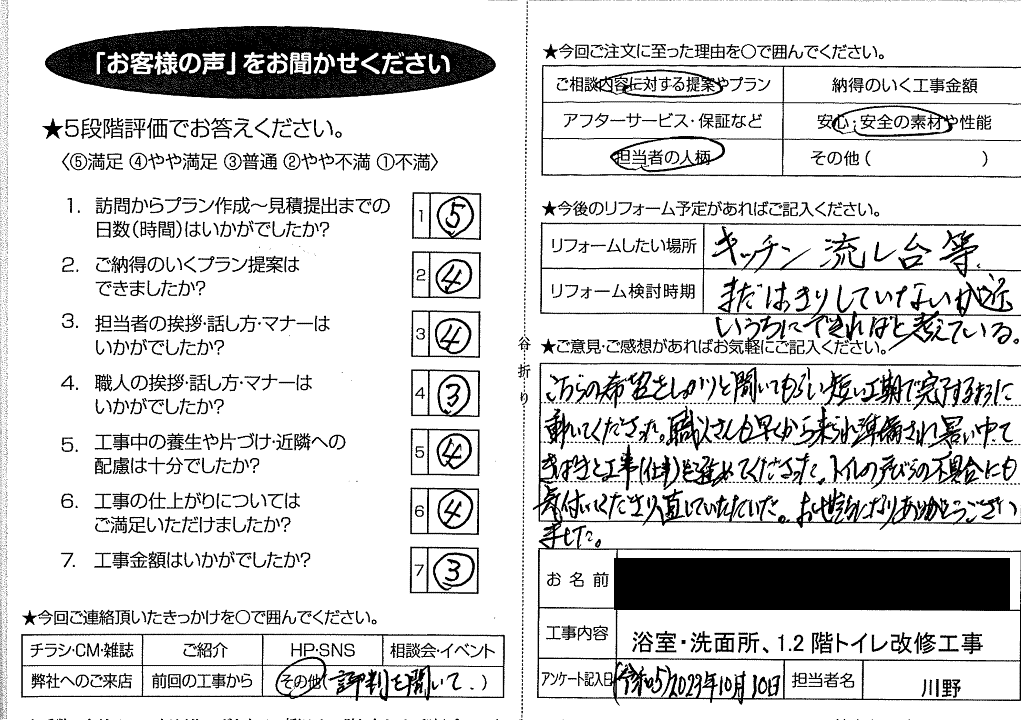 「お客様の声」をお聞かせください
★5段階評価でお答えください。
〈⑤満足 ④やや満足 ③普通 ②やや不満 ①不満〉
1. 訪問からプラン作成〜見積提出までの
日数(時間)はいかがでしたか?
1 ⑤
2. ご納得のいくプラン提案は
できましたか?
2 ④
3. 担当者の挨拶・話し方・マナーは
いかがでしたか?
3 ④
4. 職人の挨拶・話し方・マナーは
いかがでしたか?
4 ③
5. 工事中の養生や片づけ・近隣への
配慮は十分でしたか?
5 ④
6. 工事の仕上がりについては
ご満足いただけましたか?
6 ④
7. 工事金額はいかがでしたか?
7 ③
★今回ご連絡頂いたきっかけを○で囲んでください。
チラシ・CM・雑誌 ご紹介 HP・SNS 相談会・イベント
弊社へのご来店 前回の工事から その他(評判を聞いて。)
谷折り
★今回ご注文に至った理由を○で囲んでください。
ご相談内容に対する提案やプラン 納得のいく工事金額
アフターサービス・保証など 安心・安全の素材や性能
担当者の人柄 その他( )
★今後のリフォーム予定があればご記入ください。
リフォームしたい場所 キッチン 流し台 等
リフォーム検討時期 まだはっきりしていないが近
いうちにできればと考えている。
★ご意見・ご感想があればお気軽にご記入ください。
こちらの希望をしっかりと聞いてもらい短い工期で完了するように
動いてくださった。職人さんも早くから来られ準備され暑い中で
きぱきと工事(仕事)を進めてくださった。トイルの戸びらの不具合にも
気付いてくださり直していただいた。お世話になりありがとうござい
ました。
お名前
工事内容 浴室・洗面所、1.2階トイレ改修工事
アンケート記入日 (令和5)2023年10月10日 担当者名 川野